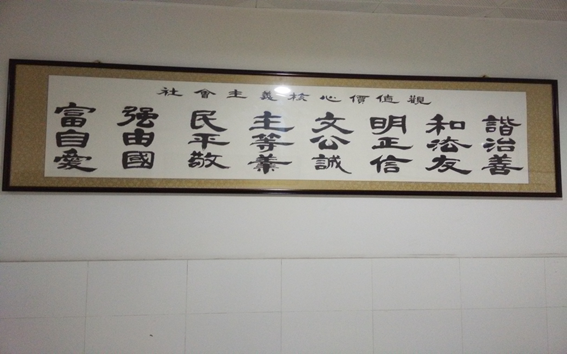 社會主義核心價值觀
富强民主文明和諧
自由平等公正法治
愛國敬業誠信友善